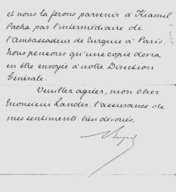 et nous la ferons parvenir à Kiamil
Pacha par l'intermédiaire de
l'Ambassadeur de Turquie à Paris.
Nous pensons qu'une copie devra
en être envoyée à notre Direction
Générale.
Veuillez agréer, mon cher
Monsieur Landes, l'assurance de
mes sentiments bien dévoués.